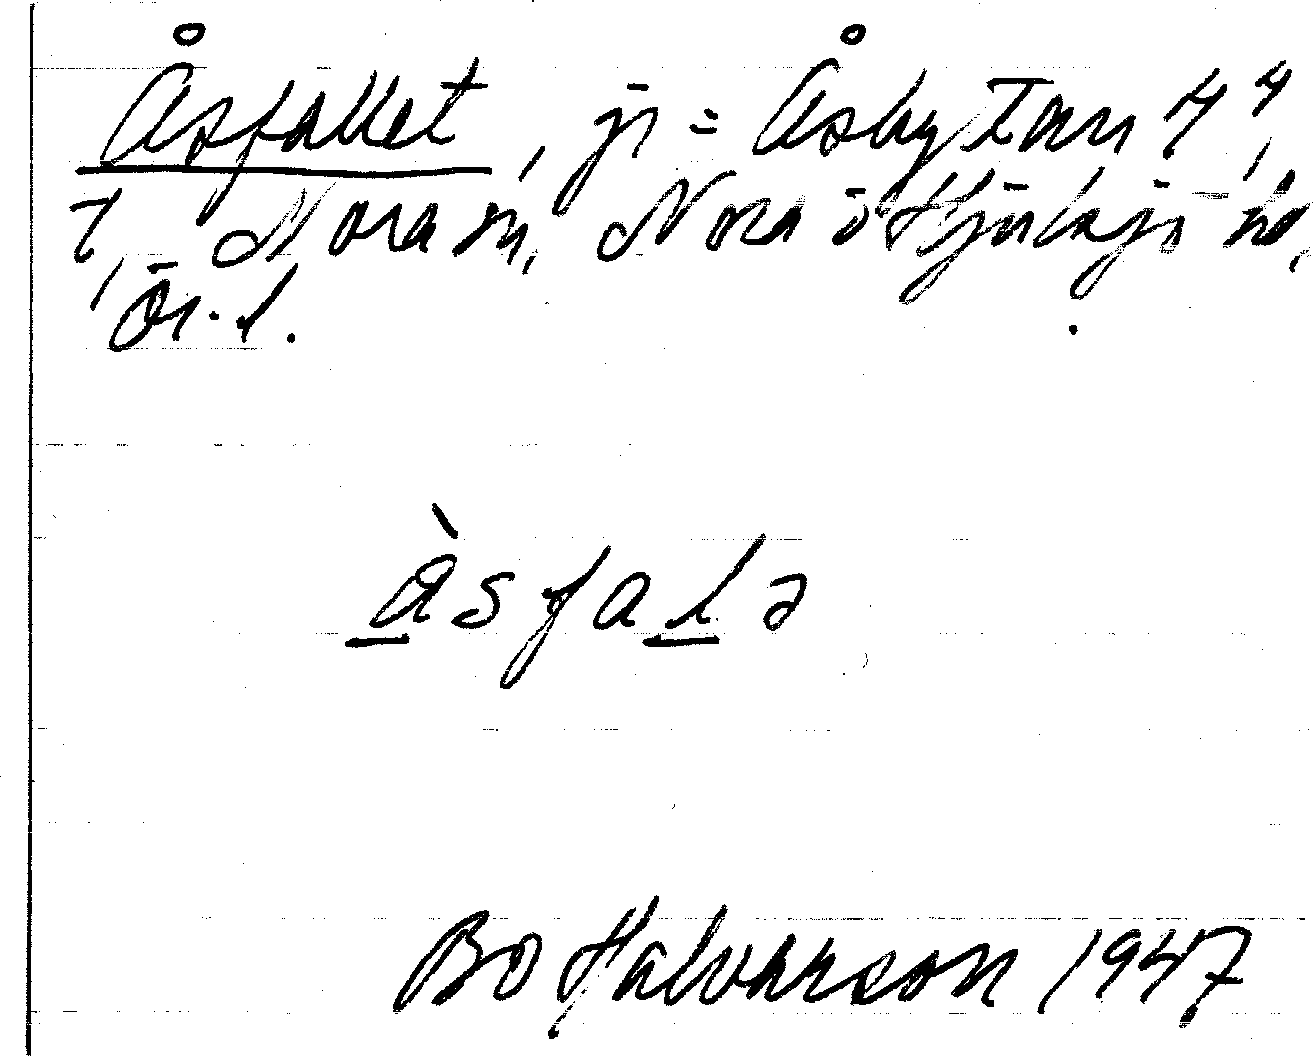 Åsfallet, jr = Åshyttan 4⁴,
7, Nora sn, Nora o Hjulsjö hd,
Ör. l.
àsfalə
Bo Halvarson 1947